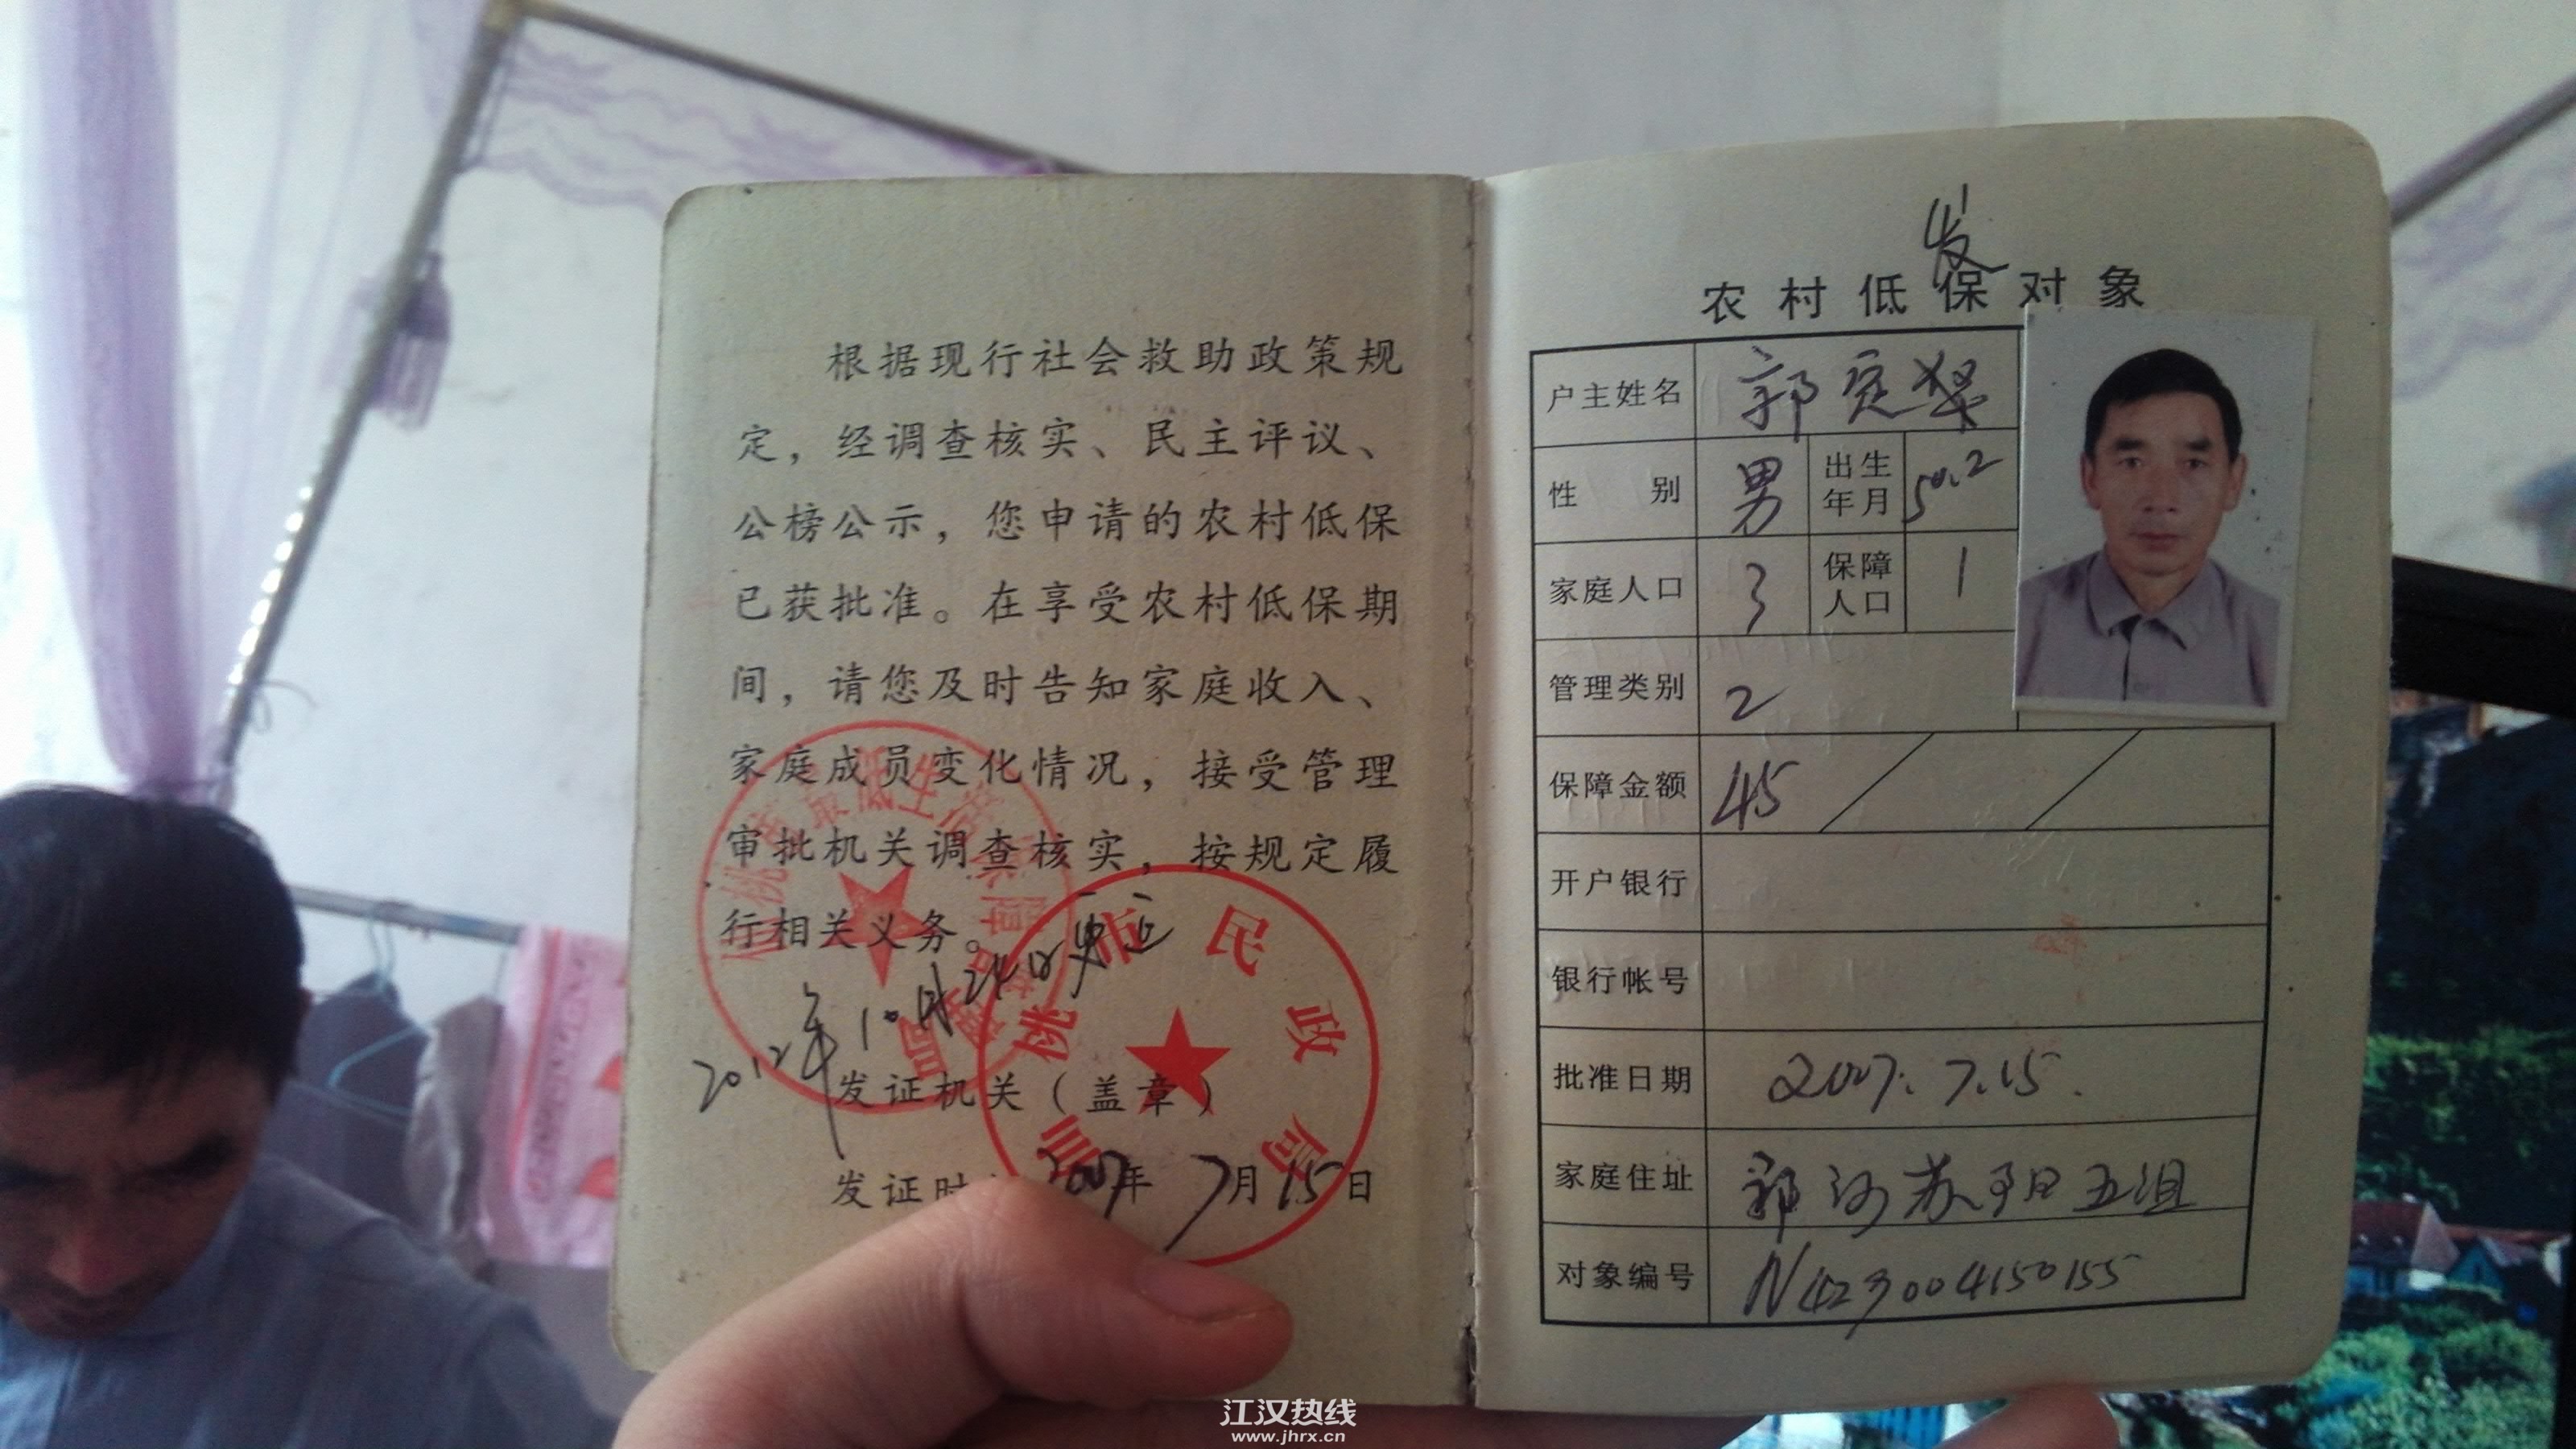 根据现行社会救助政策规
定，经调查核实、民主评议、
公榜公示，您申请的农村低保
已获批准。在享受农村低保期
间，请您及时告知家庭收入、
家庭成员变化情况，接受管理
审批机关调查核实，按规定履
行相关义务。
2012年10月24日更正
发证机关（盖章）
发证时 2007年7月15日
仙桃市民政局
发
农村低保对象
户主姓名 郭定
性别 男 出生年月 50.2
家庭人口 3 保障人口 1
管理类别 2
保障金额 45
开户银行
银行帐号
批准日期 2007.7.15.
家庭住址 郭河苏阳五组
对象编号 N429004150155
江汉热线
www.jhrx.cn